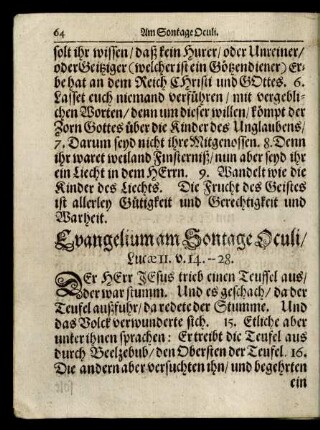 64 Am Sontage Oculi.
solt ihr wissen/ daß kein Hurer/ oder Unreiner/
oder Geitziger (welcher ist ein Götzendiener) Er-
be hat an dem Reich CHristi und GOttes. 6.
Lasset euch niemand verführen/ mit vergebli-
chen Worten/ denn um dieser willen/ kömpt der
Zorn Gottes über die Kinder des Unglaubens/
7. Darum seyd nicht ihre Mitgenossen. 8. Denn
ihr waret weiland Finsterniß/ nun aber seyd ihr
ein Liecht in dem HErrn. 9. Wandelt wie die
Kinder des Liechts. Die Frucht des Geistes
ist allerley Gütigkeit und Gerechtigkeit und
Warheit.
Evangelium am Sontage Oculi/
Lucæ II. v. 14. -- 28.
DEr HErr JEsus trieb einen Teuffel aus/
der war stumm. Und es geschach/ da der
Teufel außfuhr/ da redete der Stumme. Und
das Volck verwunderte sich. 15. Etliche aber
unter ihnen sprachen: Er treibt die Teufel aus
durch Beelzebub/ den Obersten der Teufel. 16.
Die andern aber versuchten ihn/ und begehrten
ein